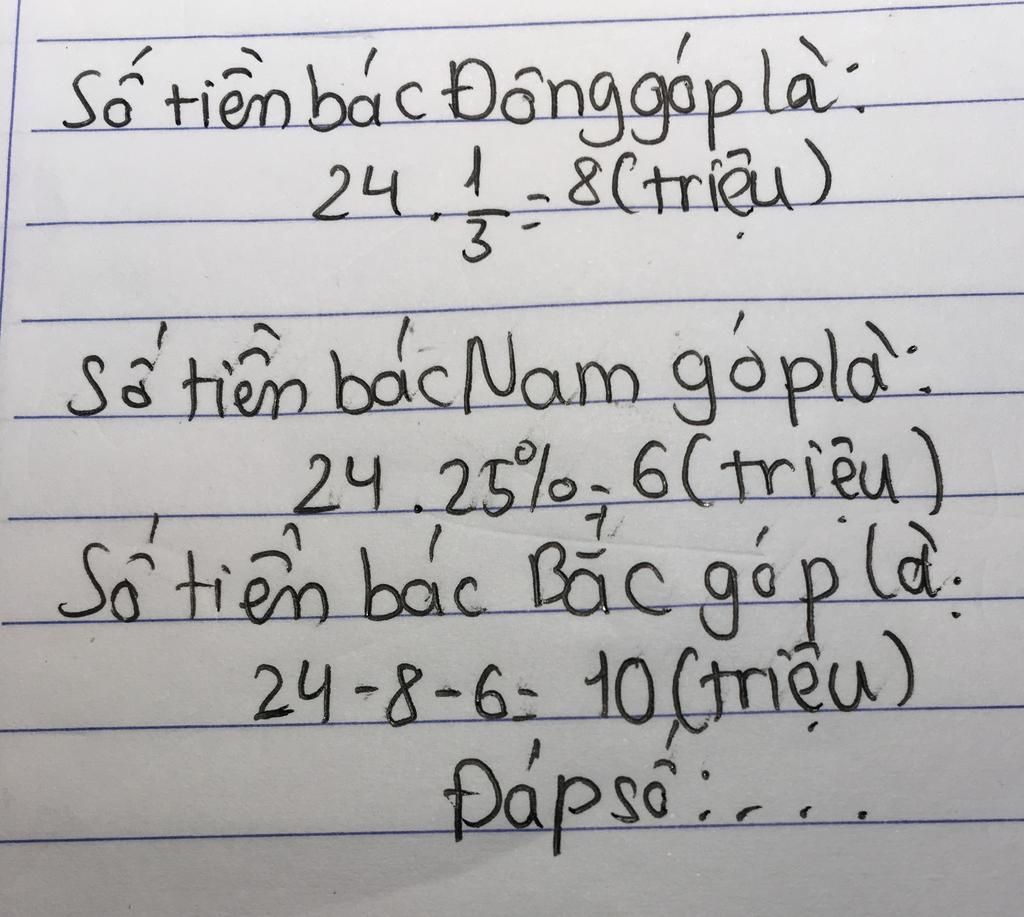 Số tiền bác Đông góp là:
24 . 1/3 = 8 (triệu)
Số tiền bác Nam góp là:
24 . 25% = 6 (triệu)
Số tiền bác Bắc góp là:
24 - 8 - 6 = 10 (triệu)
Đáp số: ....